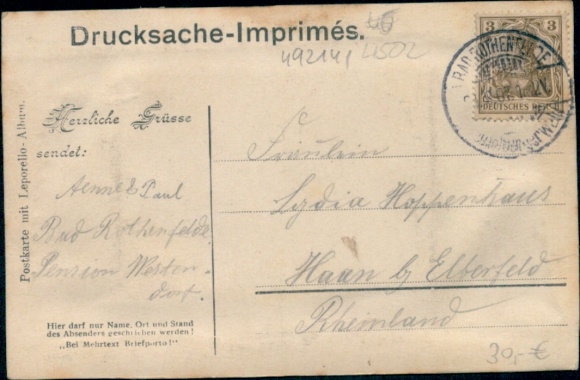 Drucksache-Imprimés.
492141
4502
3 3
DEUTSCHES REICH
BAD ROTHENFELDE
Herzliche Grüsse
sendet:
Aenne & Paul
Bad Rothenfelde,
Pension Westen-
dorf.
Hier darf nur Name, Ort und Stand
des Absenders geschrieben werden!
„Bei Mehrtext Briefporto!"
Postkarte mit Leporello-Album.
Fräulein
Lydia Hoppenhaus
Haan b/ Elberfeld
Rheinland
30,-€